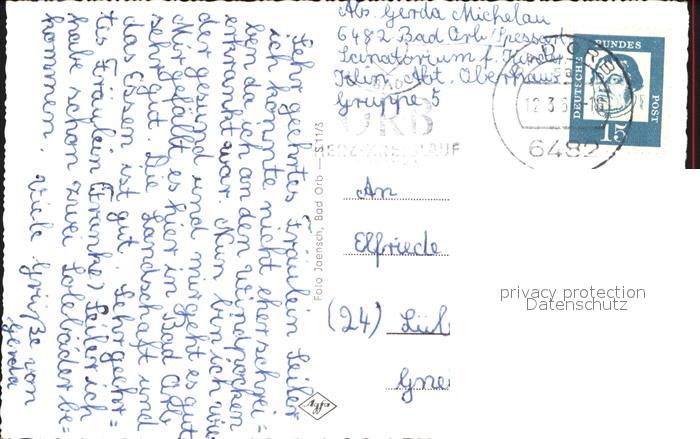 Ab. Gerda Michelau
6482 Bad Orb/Spessart
Sanatorium f. Kinder
Klin. Abt. Oberhaus
Gruppe 5
DEUTSCHE BUNDES POST
15
BAD ORB
12.3.6
6482
BAD
ORB
HERZ-KREISLAUF
An
Elfriede
(24) Lüb
Gnei
privacy protection
Datenschutz
Foto Jaensch, Bad Orb — S 11/3
Agfa
Sehr geehrtes Fräulein Seiler
ich konnte nicht eher schrei=
ben da ich an den Windpocken
erkrankt war. Nun bin ich wie
der gesund und mir geht es gut
Mir gefällt es hier in Bad Orb
sehr gut. Die Landschaft und
das Essen ist gut. Sehr geehr=
tes Fräulein (Franke) Seiler ich
habe schon zwei Solebäder be=
kommen. Viele Grüße von
Gerda